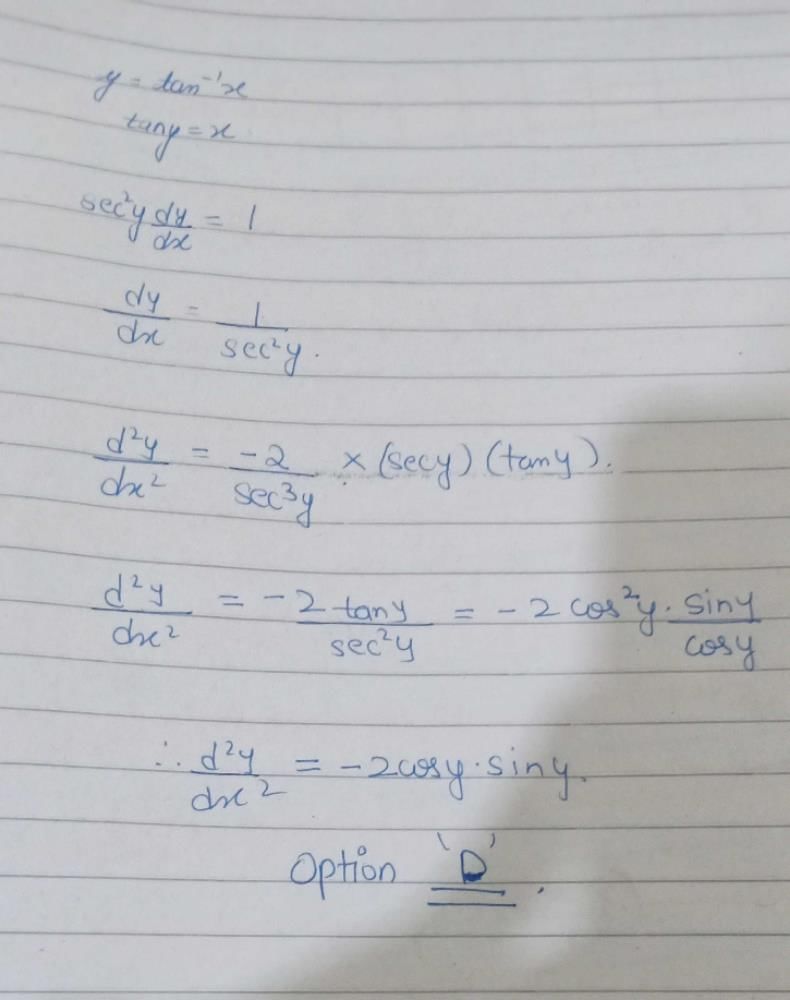 y = tan⁻¹x
tany = x
sec²y dy/dx = 1
dy/dx = 1/sec²y.
d²y/dx² = -2/sec³y × (secy) (tany).
d²y/dx² = -2 tany/sec²y = -2 cos²y · siny/cosy
∴ d²y/dx² = -2cosy · siny.
Option 'D'.